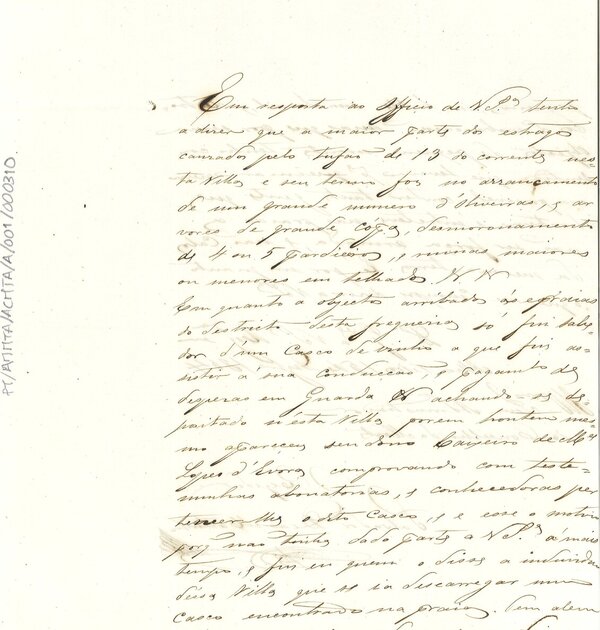 PT/AMMTA/ACMTA/A/001/000310
Em resposta ao Officio de V. S.ª tenho
a dizer que a maior parte dos estragos
cauzados pelo tufão de 13 do corrente nes-
ta Villa e seu termo foi no arrancamento
de um grande numero d'Oliveiras, e ar
vores de grande cópa, desmoronamento
de 4 ou 5 pardieiros, e ruinas maiores
ou menores em telhados.
Em quanto a objectos arribados ás praias
do destricto desta freguezia só fui sabe-
dor d'um Casco de vinho a que fui as-
sistir á sua conducção, e pagamto de
despezas em Guarda achando-se de-
pozitado n'ésta Villa porem hontem mes-
mo apareceu seu dono Caixeiro de Mel
Lopes d'Evora comprovando com teste-
munhas abonatorias, e conhecedoras per
tencer-lhe o dito Casco, e e esse o motivo
porq não tenho dado parte a V. S.ª á mais
tempo, e fui eu quem o disse a individuo
déssa Villa que se ia descarregar um
Casco encontrado na praia. Tem alem